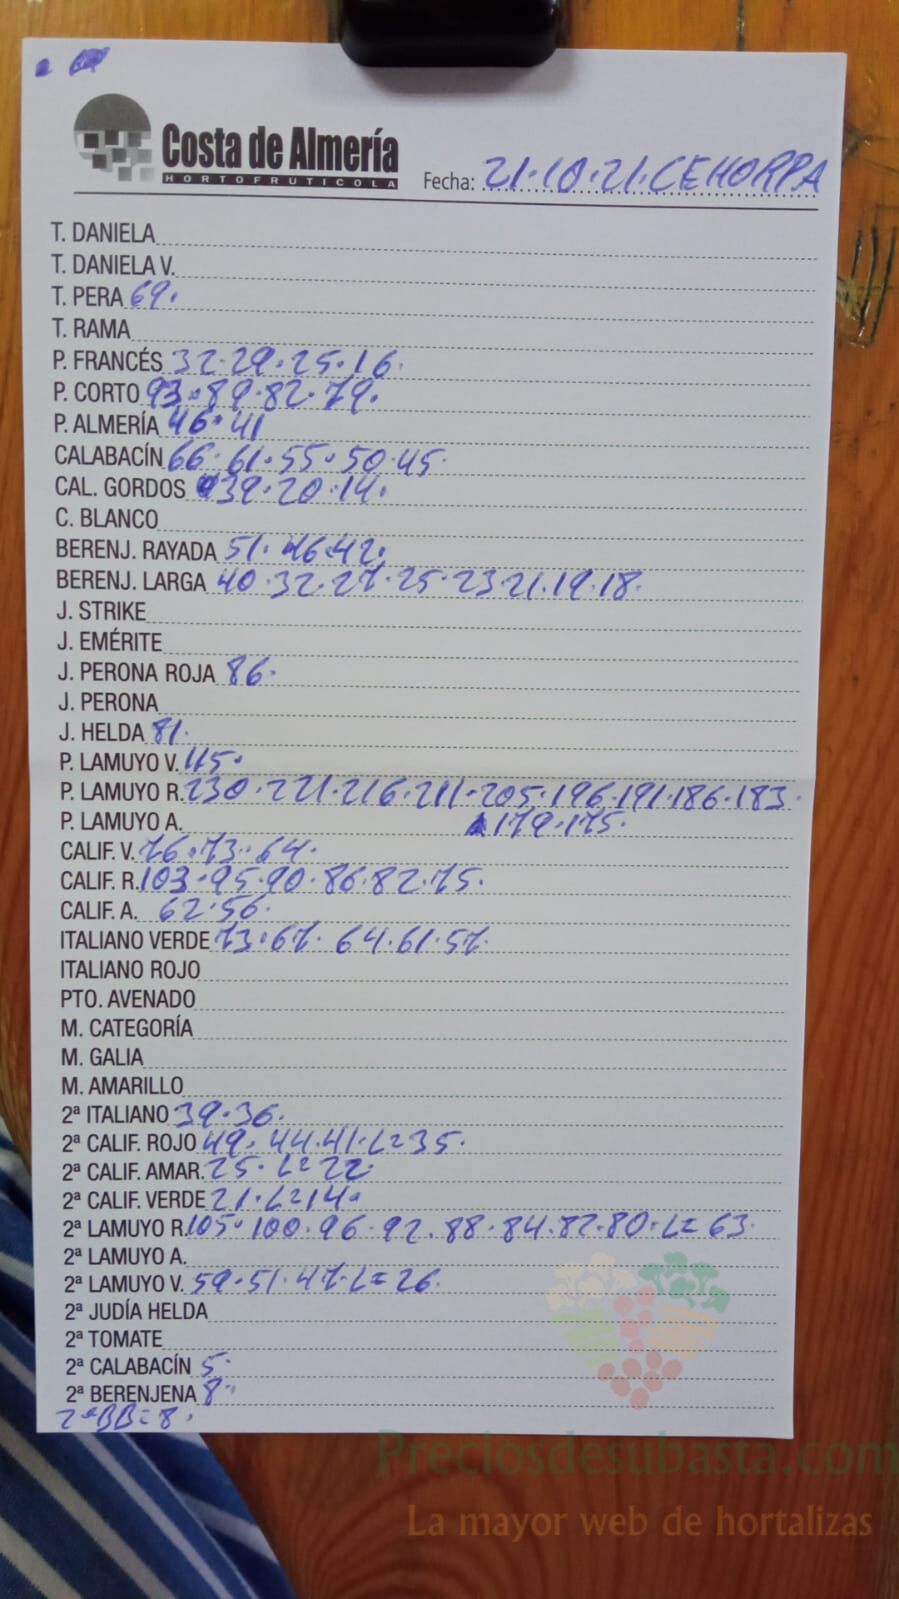 Costa de Almería
HORTOFRUTICOLA
Fecha: 21·10·21·CEHORPA
T. DANIELA
T. DANIELA V.
T. PERA 69.
T. RAMA
P. FRANCÉS 32·29·25·16.
P. CORTO 93·89·82·79.
P. ALMERÍA 46·41
CALABACÍN 66·61·55·50·45.
CAL. GORDOS 39·20·14.
C. BLANCO
BERENJ. RAYADA 51·46·42.
BERENJ. LARGA 40·32·27·25·23 21·19·18.
J. STRIKE
J. EMÉRITE
J. PERONA ROJA 86.
J. PERONA
J. HELDA 81.
P. LAMUYO V. 115.
P. LAMUYO R. 230·221·216·211·205·196·191·186·183.
P. LAMUYO A. 179·175.
CALIF. V. 76·73·64.
CALIF. R. 103·95·90·86·82·75.
CALIF. A. 62·56.
ITALIANO VERDE 73·67· 64·61·57.
ITALIANO ROJO
PTO. AVENADO
M. CATEGORÍA
M. GALIA
M. AMARILLO
2ª ITALIANO 39·36.
2ª CALIF. ROJO 49· 44·41·L=35.
2ª CALIF. AMAR. 25· L=22.
2ª CALIF. VERDE 21·L=14.
2ª LAMUYO R. 105·100·96·92·88·84·82·80·L=63.
2ª LAMUYO A.
2ª LAMUYO V. 59·51·47·L=26.
2ª JUDÍA HELDA
2ª TOMATE
2ª CALABACÍN 5.
2ª BERENJENA 8.
2ªBB=8.
Preciosdesubasta.com
La mayor web de hortalizas